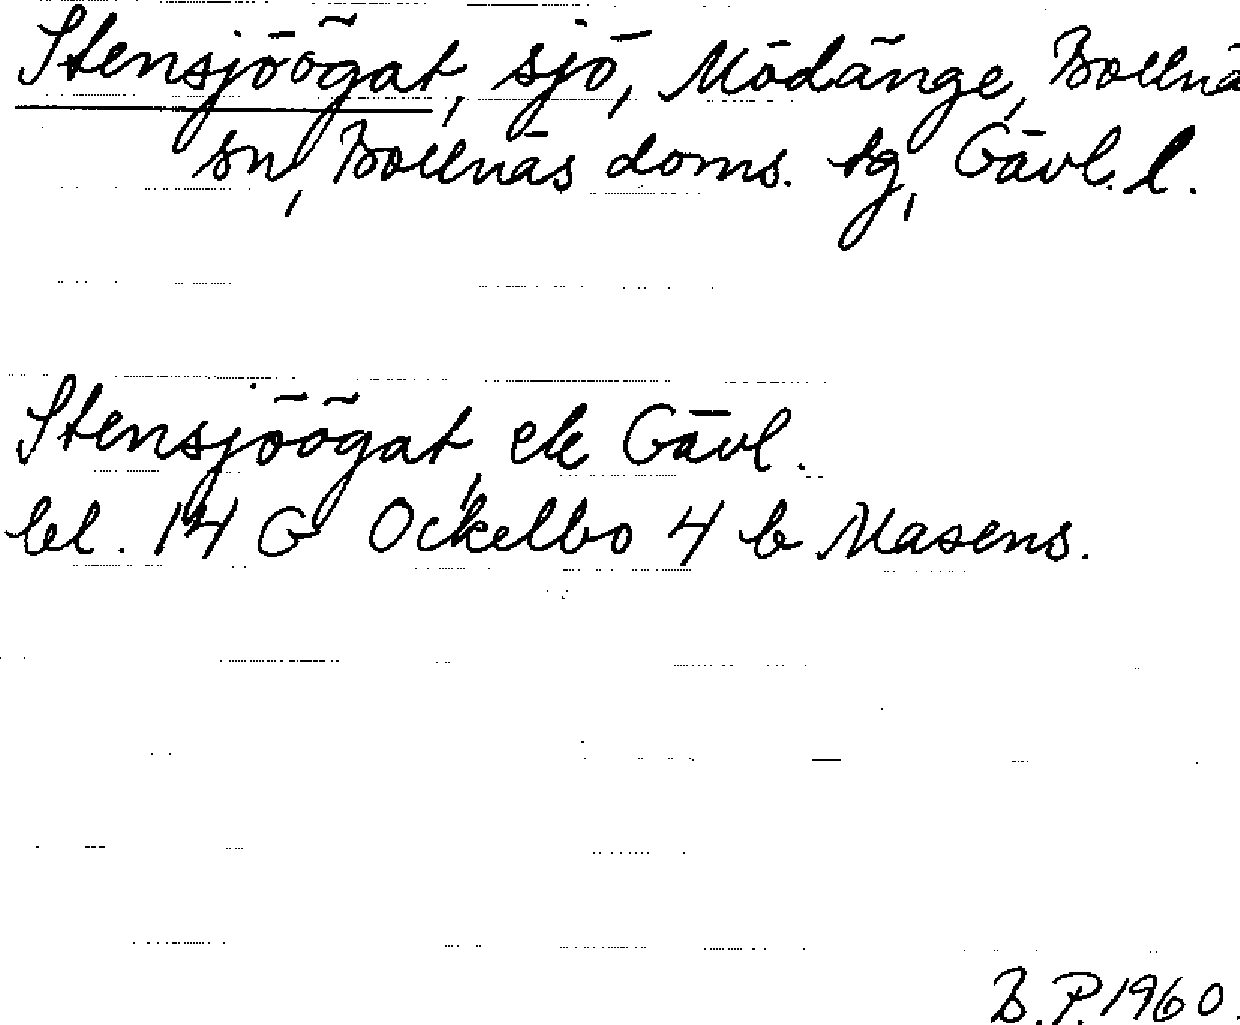 Stensjöögat, sjö, Mödänge, Bollnä
sn, Bollnäs doms. tg, Gävl. l.
Stensjöögat, ek Gävl.
bl. 14 G Ockelbo 4 b Masens.
B.P. 1960.